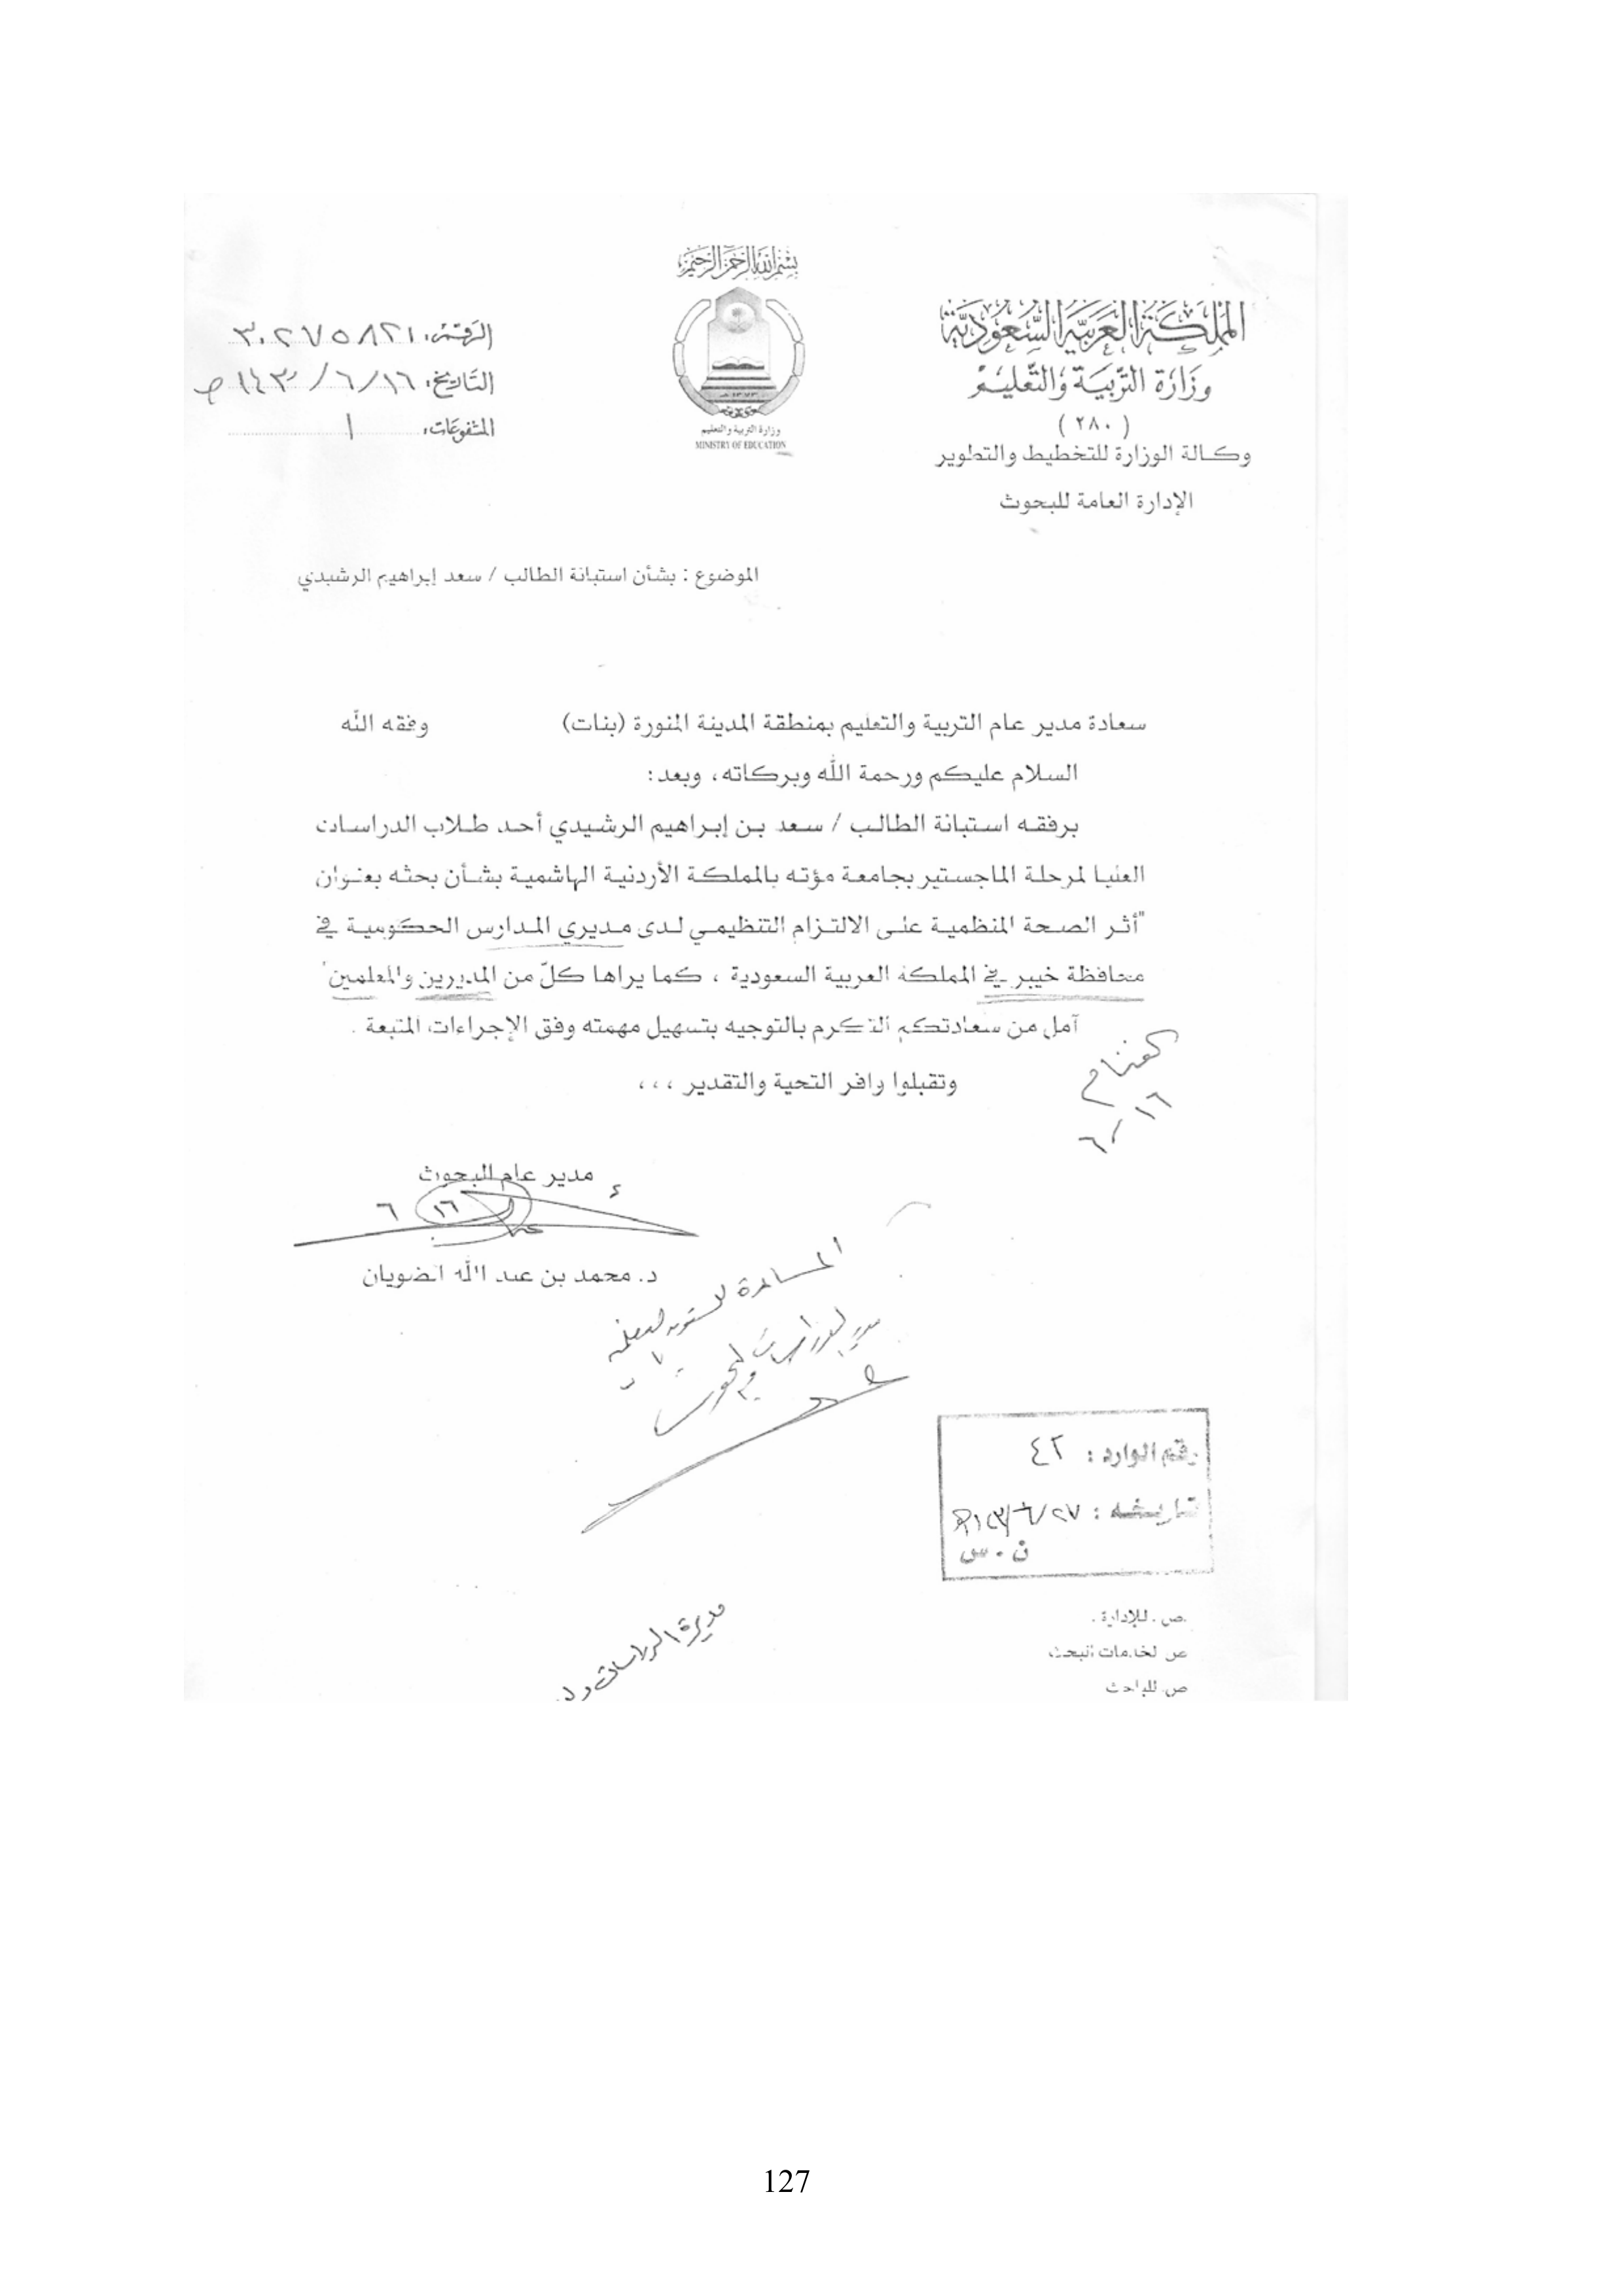 بسم الله الرحمن الرحيم
المملكة العربية السعودية
وزارة التربية والتعليم
(٢٨٠)
وكالة الوزارة للتخطيط والتطوير
الإدارة العامة للبحوث
وزارة التربية والتعليم
MINISTRY OF EDUCATION
الرقم: ٣٠٢٧٥٨٢١
التاريخ: ١٦/٦/١٤٣٠ هـ
المشفوعات: ١
الموضوع : بشأن استبانة الطالب / سعد إبراهيم الرشيدي
سعادة مدير عام التربية والتعليم بمنطقة المدينة المنورة (بنات) وفقه الله
السلام عليكم ورحمة الله وبركاته، وبعد:
برفقه استبانة الطالب / سعد بن إبراهيم الرشيدي أحد طلاب الدراسات
العليا لمرحلة الماجستير بجامعة مؤته بالمملكة الأردنية الهاشمية بشأن بحثه بعنوان
"أثر الصحة المنظمية على الالتزام التنظيمي لدى مديري المدارس الحكومية في
محافظة خيبر في المملكة العربية السعودية ، كما يراها كلّ من المديرين والمعلمين"
آمل من سعادتكم التكرم بالتوجيه بتسهيل مهمته وفق الإجراءات المتبعة .
وتقبلوا وافر التحية والتقدير ،،،
١٦/٦
مدير عام البحوث
١٦ ٦
د. محمد بن عبد الله الضويان
رقم الوارد : ٤٢
تاريخه :
ن . س
ص . للإدارة .
ص لخدمات البحث
ص. للباحث
مديرة الدراسات
127